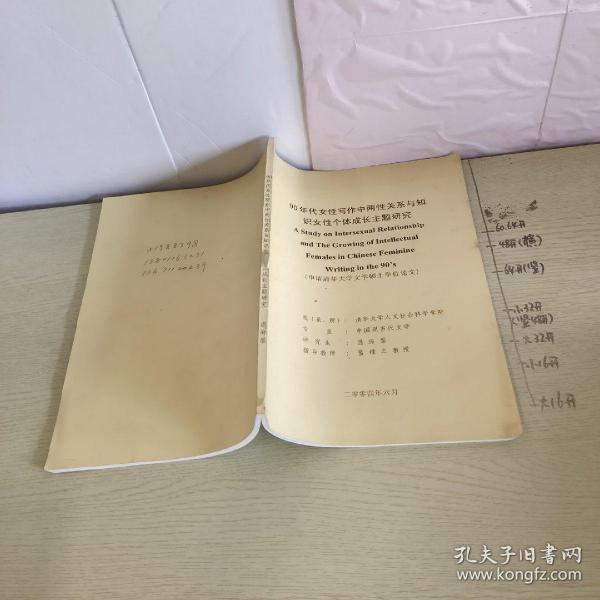 90年代女性写作中两性关系与知
识女性个体成长主题研究
A Study on Intersexual Relationship
and The Growing of Intellectual
Females in Chinese Feminine
Writing in the 90's
(申请清华大学文学硕士学位论文)
院(系、所): 清华大学人文社会科学学院
专 业: 中国现当代文学
研究生:
指导教师: 教授
二零零四年六月
60.64开
48开(横)
64开(竖)
小32开
(竖48开)
大32开
小16开
大16开
孔夫子旧书网
www.kongfz.com